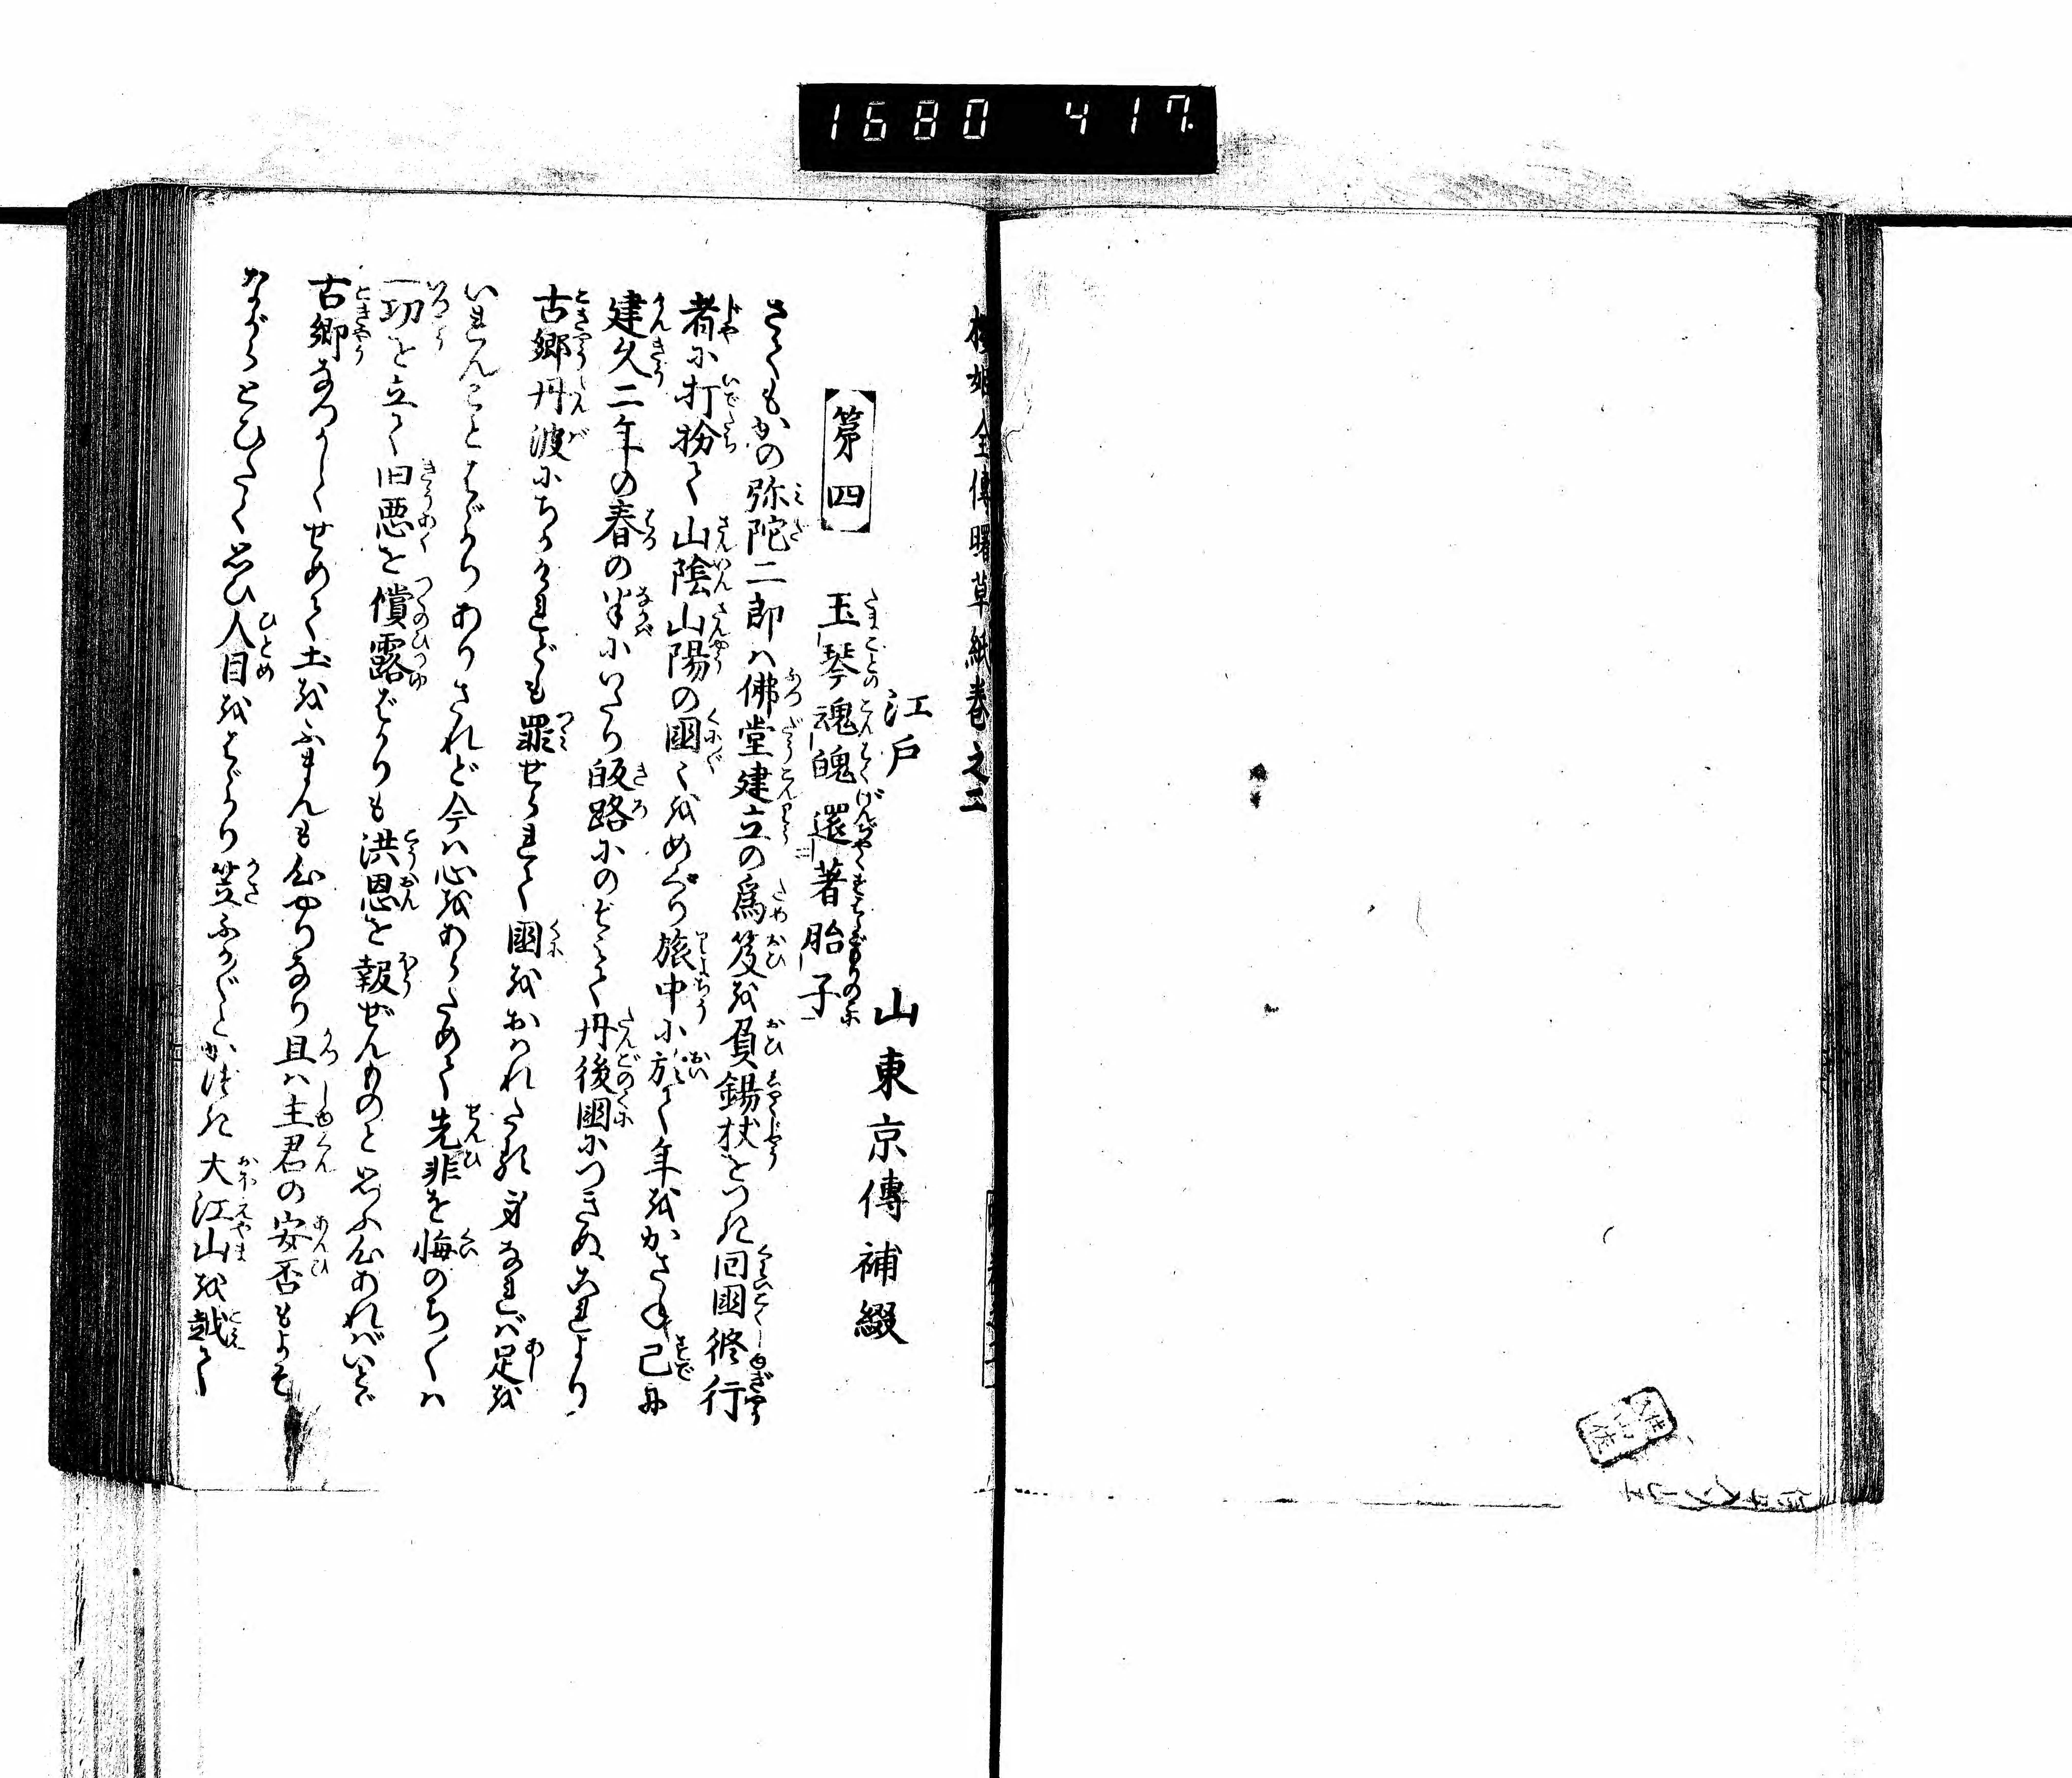 1680 417
櫻姫全傳曙草紙巻之二
江戸 山東京傳補綴
第四 玉琴魂魄還著胎子
さてもかの弥陀二郎ハ佛堂建立の爲笈を負錫杖をつき回國修行
者に打扮て山陰山陽の國〻をめぐり旅中に於て年をかさね已に
建久二年の春の半にいたり皈路におもむきて丹後國につきぬこれより
古郷丹波にちかけれども罪せられて國をおハれたる身なれバ足を
いれんことはゞかりありされど今ハ心をあらためて先非を悔のち〳〵ハ
一功を立て旧悪を償露ばかりも洪恩を報ぜんものと思ふ心あれバいとゞ
古郷なつかしくせめて土をふまんも心やりなり且ハ主君の安否もよそ
ながらとひたく思ひ人目をはゞかり笠ふかくとかづき大江山を越て